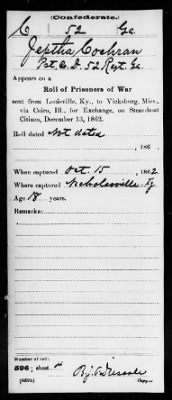 (Confederate.)
C 52 Ga
Jeptha Cochran
Pvt Co D, 52 Regt Ga.
Appears on a
Roll of Prisoners of War
sent from Louisville, Ky., to Vicksburg, Miss.,
via Cairo, Ill., for Exchange, on Steamboat
Citizen, December 13, 1862.
Roll dated Not dated
, 186
When captured Oct. 15, 1862
Where captured Nicholasville Ky
Age 18 years.
Remarks:
Number of roll:
596; sheet 4
Copyist.